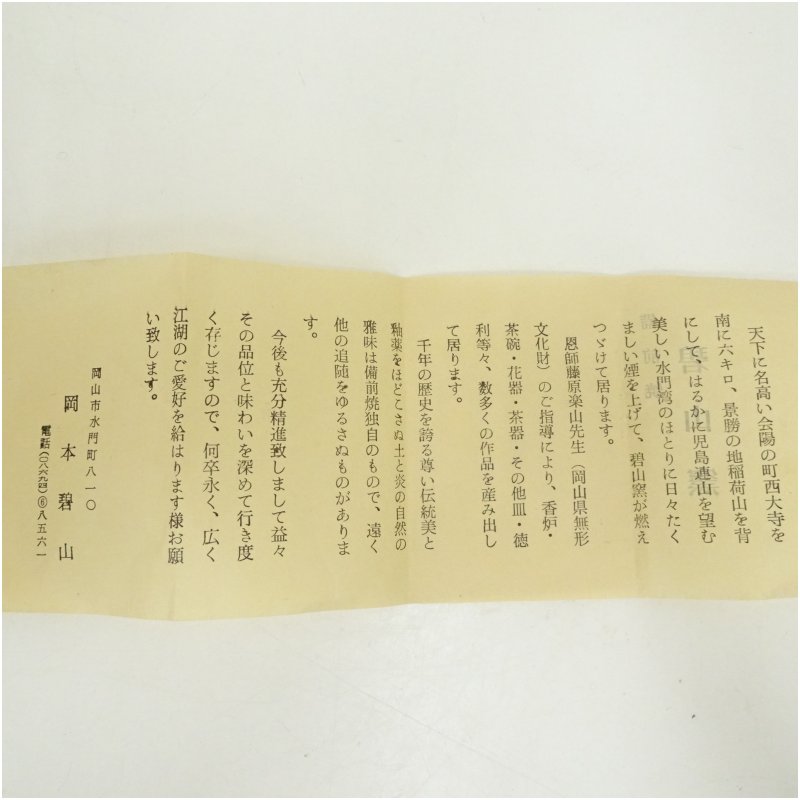 天下に名高い会陽の町西大寺を
南に六キロ、景勝の地稲荷山を背
にして、はるかに児島連山を望む
美しい水門湾のほとりに日々たく
ましい煙を上げて、碧山窯が燃え
つゞけて居ります。
恩師藤原楽山先生（岡山県無形
文化財）のご指導により、香炉・
茶碗・花器・茶器・その他皿・徳
利等々、数多くの作品を産み出し
て居ります。
千年の歴史を誇る尊い伝統美と
釉薬をほどこさぬ土と炎の自然の
雅味は備前焼独自のもので、遠く
他の追随をゆるさぬものがありま
す。
今後も充分精進致しまして益々
その品位と味わいを深めて行き度
く存じますので、何卒永く、広く
江湖のご愛好を給はります様お願
い致します。
岡山市水門町八一〇
岡本碧山
電話(〇八六九四)⑥八五六一